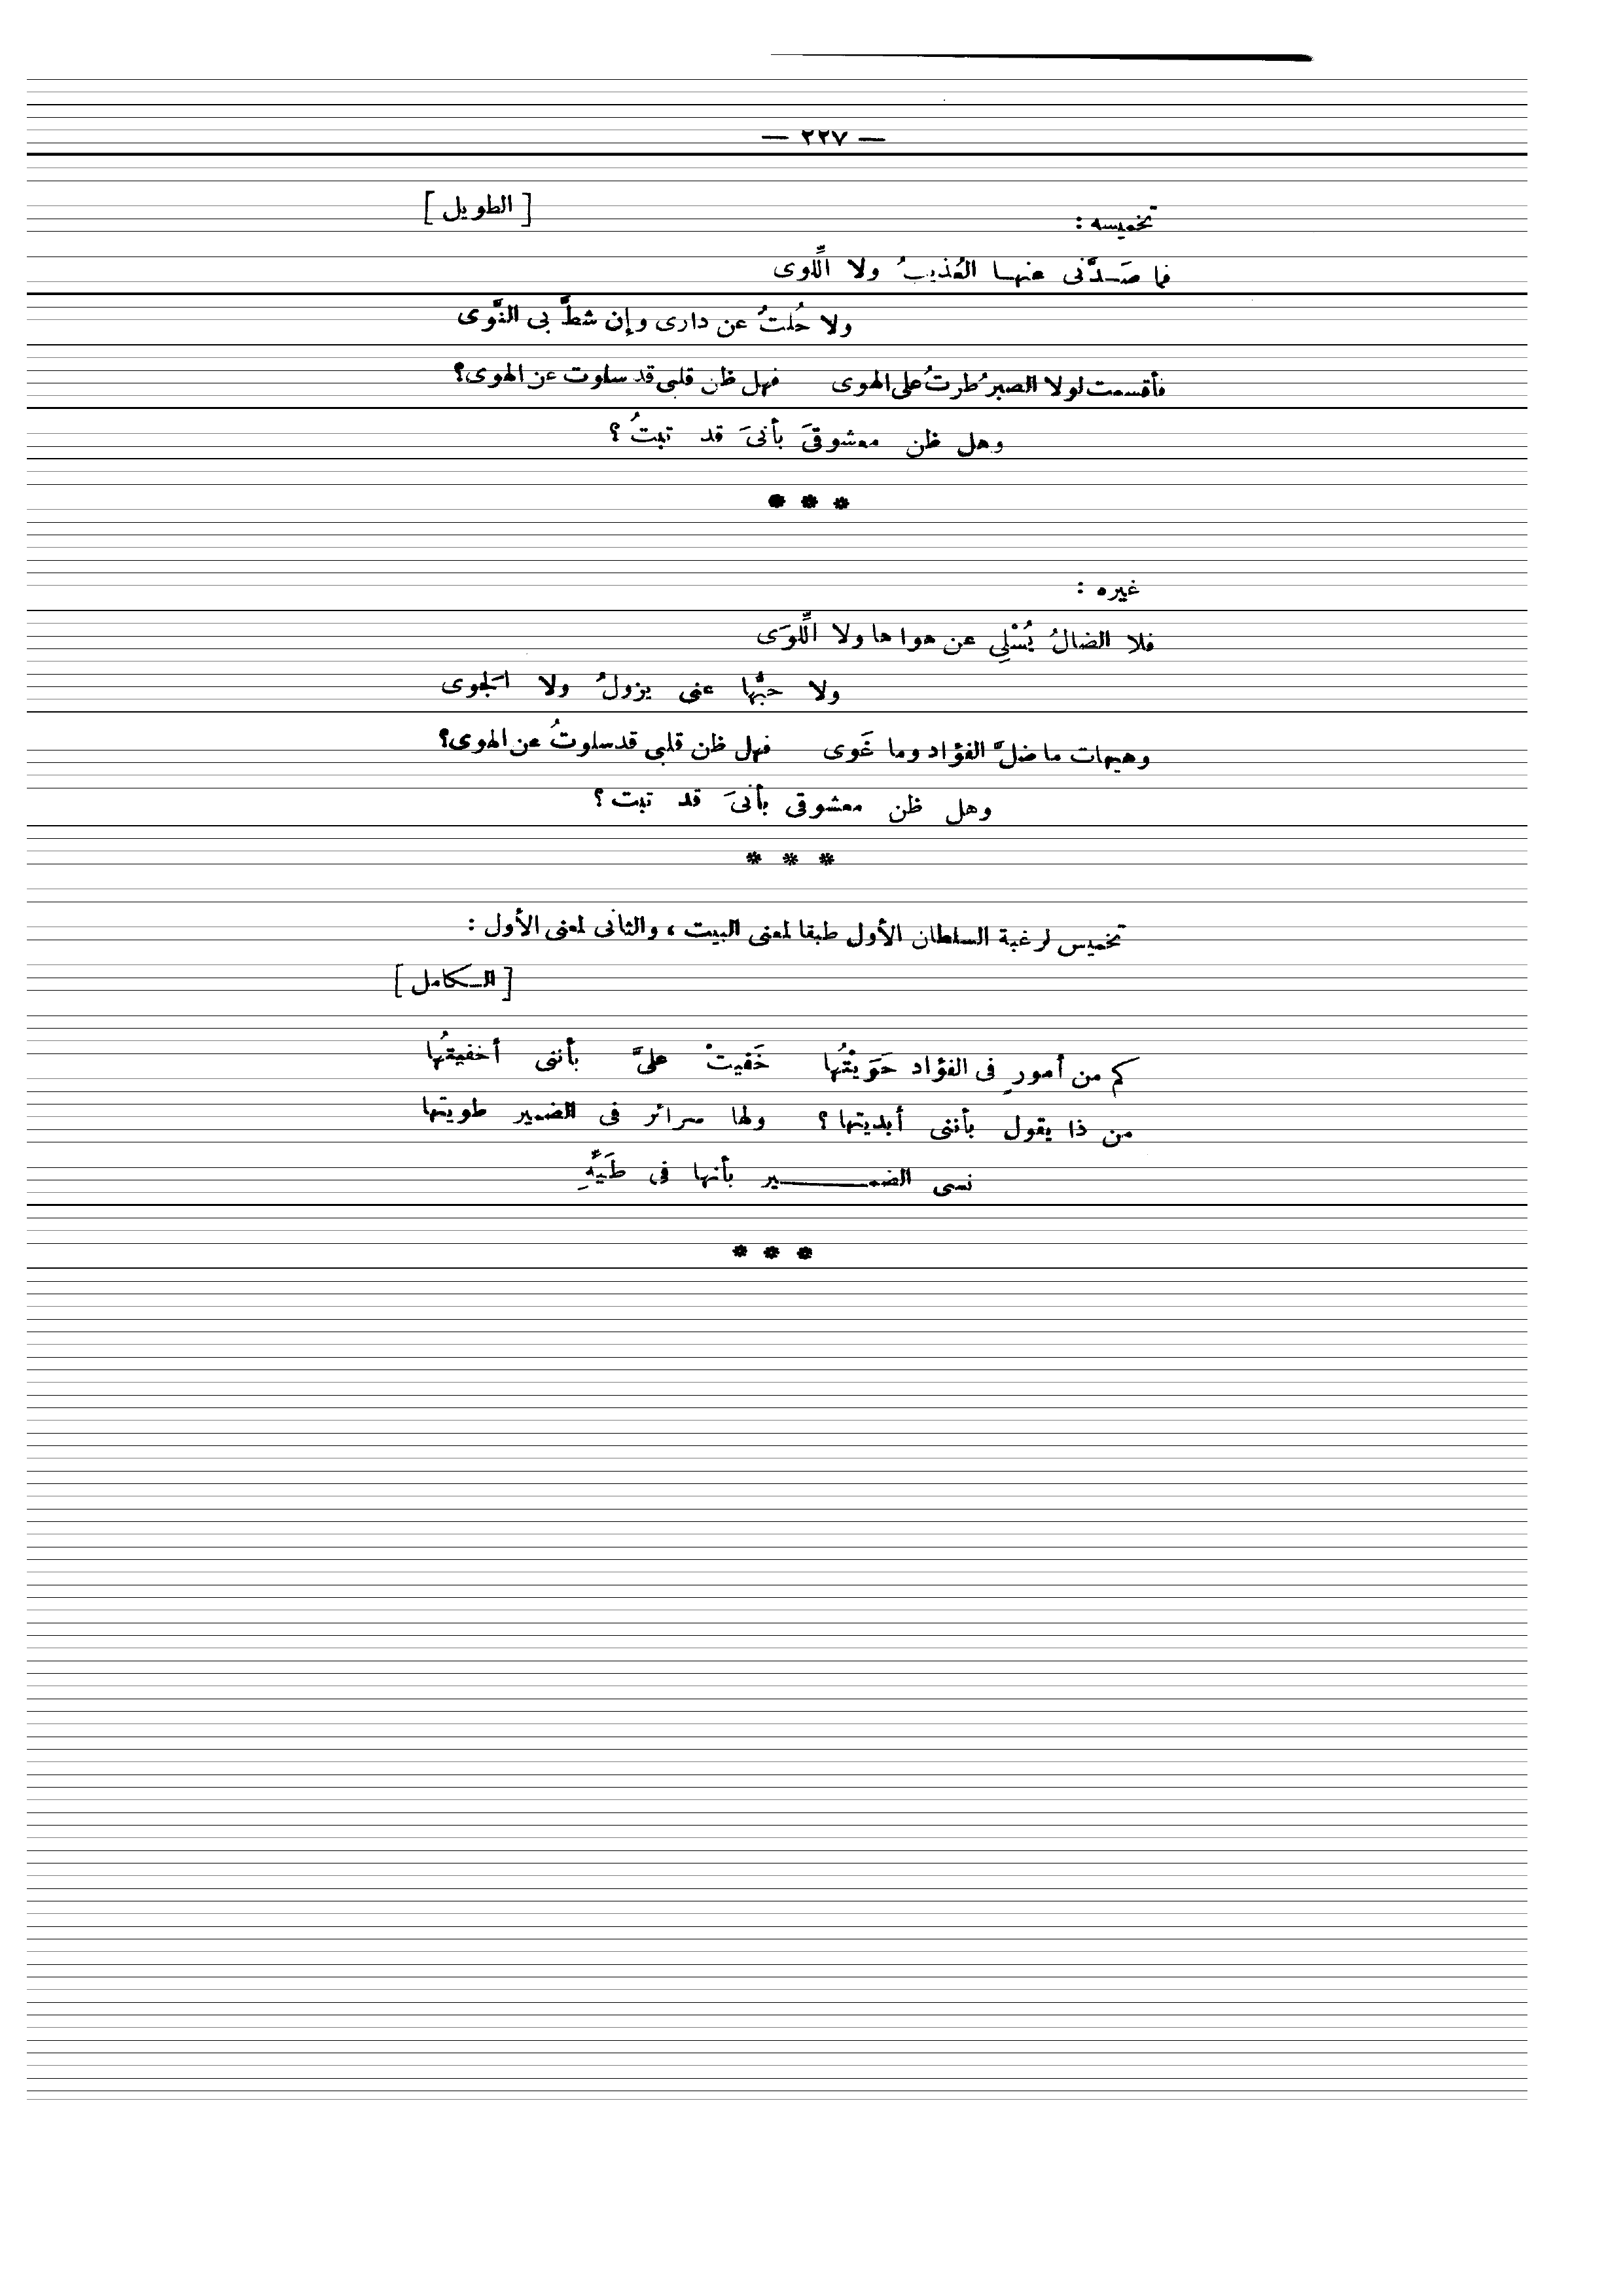 — ٢٢٧ —
تخميسه : [ الطويل ]
فما صَـدَّنى عنهـا العُذيبُ ولا اللِّوى
ولا حُلتُ عن دارى وإن شطَّ بى النَّوى
فأقسمت لولا الصبرُ طرتُ على الهوى فهل ظن قلبى قد سلوت عن الهوى؟
وهل ظن معشوقىَ بأنىَ قد تبتُ ؟
* * *
غيره :
فلا الضالُ يُسْلِى عن هواها ولا اللِّوَى
ولا حبُّها عنى يزولُ ولا الجَوى
وهيهات ما ضلَّ الفؤاد وما غَوى فهل ظن قلبى قد سلوتُ عن الهوى؟
وهل ظن معشوقى بأنىَ قد تبت ؟
* * *
تخميس لرغبة السلطان الأول طبقا لمعنى البيت ، والثانى لمعنى الأول :
[ الـكامل ]
كم من أمورٍ فى الفؤاد حَوَيْتُها خَفيتْ علىَّ بأننى أخفيتُها
من ذا يقول بأننى أبديتها ؟ ولها سرائر فى الضمير طويتها
نسى الضمـــــير بأنها فى طَيِّهِ
* * *